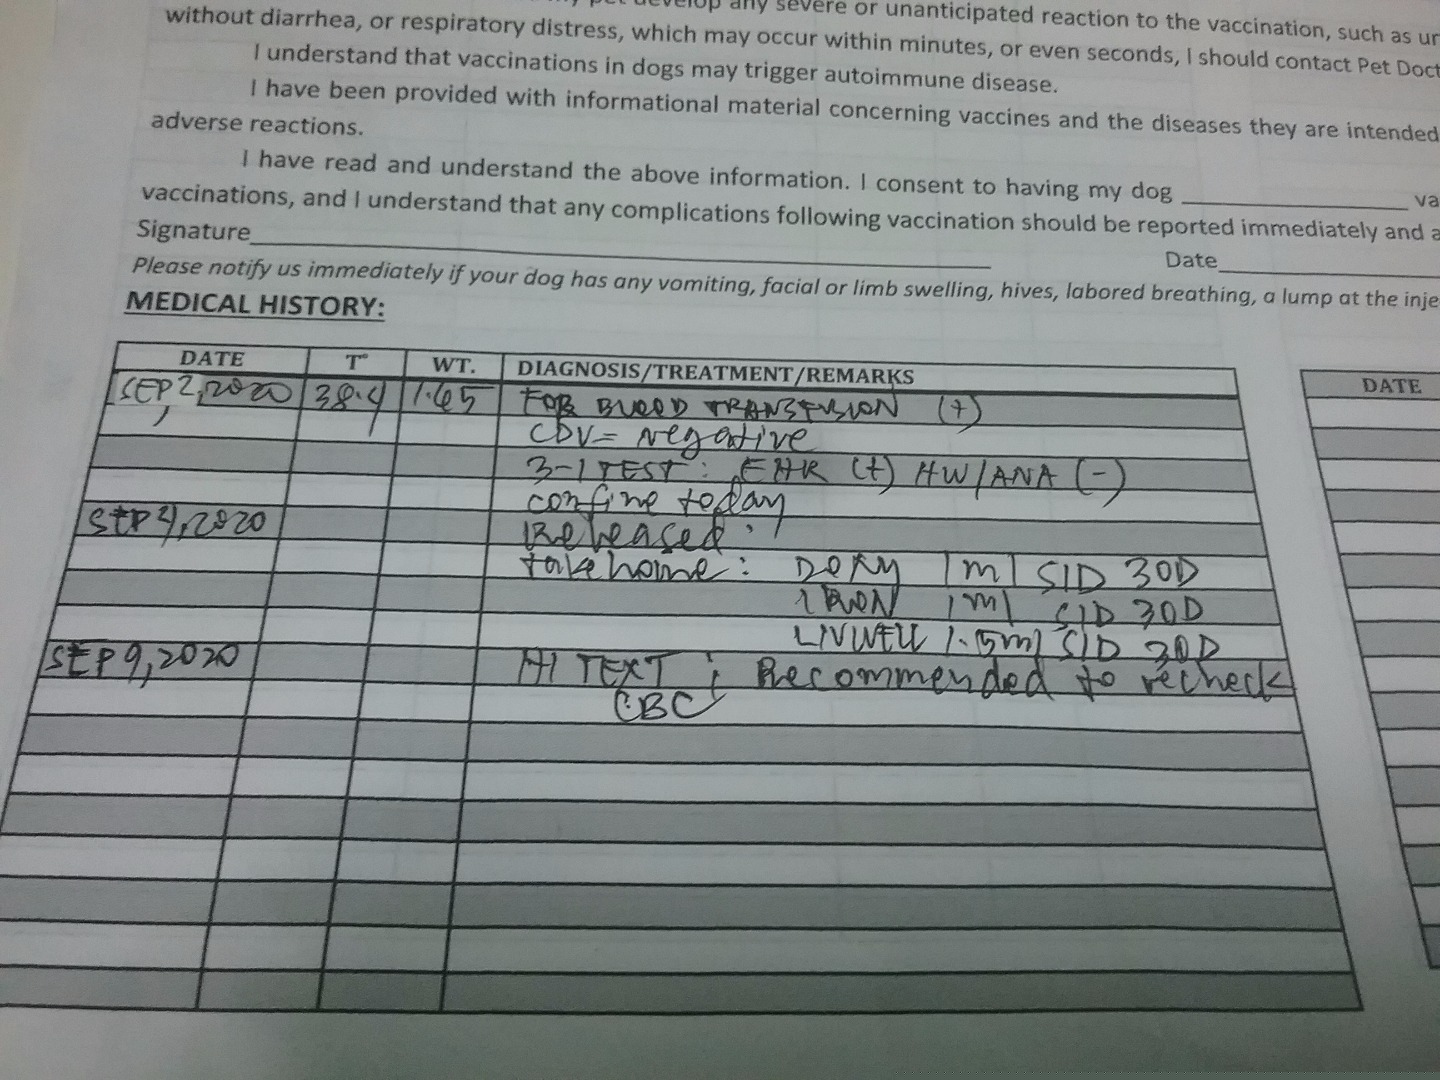 any severe or unanticipated reaction to the vaccination, such as ur
without diarrhea, or respiratory distress, which may occur within minutes, or even seconds, I should contact Pet Doct
I understand that vaccinations in dogs may trigger autoimmune disease.
I have been provided with informational material concerning vaccines and the diseases they are intended
adverse reactions.
I have read and understand the above information. I consent to having my dog ____ va
vaccinations, and I understand that any complications following vaccination should be reported immediately and a
Signature____ Date____
Please notify us immediately if your dog has any vomiting, facial or limb swelling, hives, labored breathing, a lump at the inje
MEDICAL HISTORY:
DATE T° WT. DIAGNOSIS/TREATMENT/REMARKS DATE
SEP 2, 2020 38.4 1.65 FOR BLOOD TRANSFUSION (+)
CDV = negative
3-1 TEST: EHR (+) HW/ANA (-)
confine today
SEP 4, 2020 Released:
take home: DOXY 1ml SID 30D
IRON 1ml SID 30D
LIVWELL 1.5ml SID 30D
SEP 9, 2020 TEXT ; Recommended to recheck
CBC